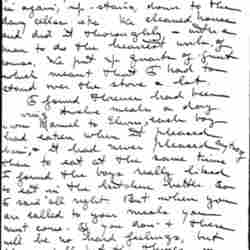 it again, up-stairs, down to the
We cleaned house
and did it thoroughly - with a
man to do the heaviest with of
house. We put up quarts of fruit
which meant that I had to
stand over the stove a lot.
I found Florence had been
twelve meals a day
Manuel & Elwin, each boy
eaten when it pleased
him, & it had never pleased any boy
them to eat at the same time
I found the boys really liked
to eat in the kitchen better. So
I said all right. But when you
are called to your meals you
must come. If you don't there
will be no hard feelings, but